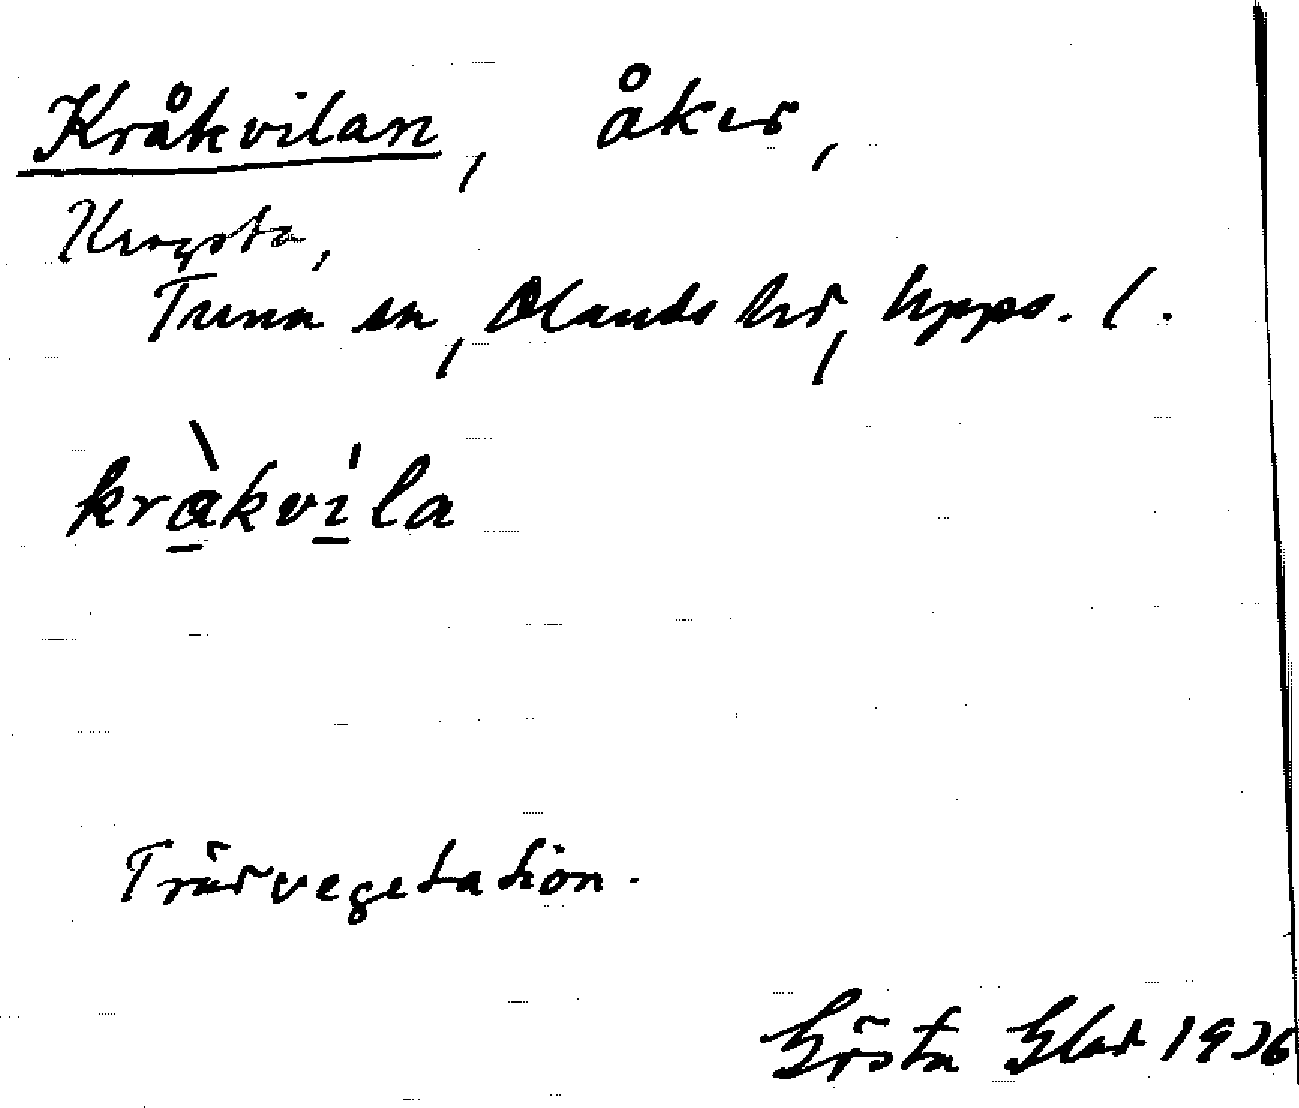 Kråkvilan, åker,
Kungsta,
Tuna sn, Olands hd, Upps. l.
kràkvi'la
Trädvegetation.
Gösta Glad 1936